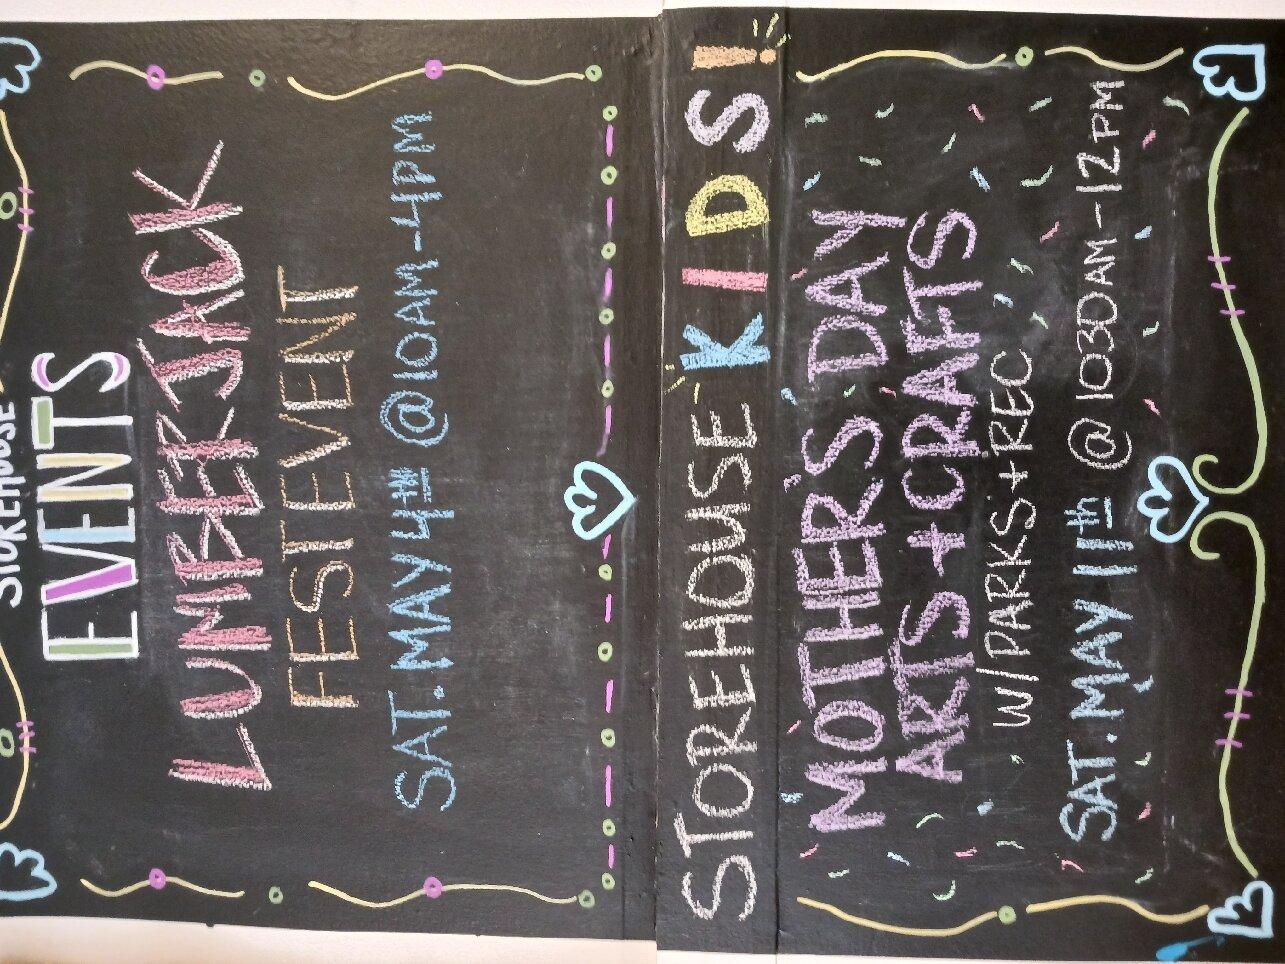 STOREHOUSE
EVENTS
LUMBERJACK
FEST EVENT
SAT. MAY 4TH @ 10AM-4PM
STOREHOUSE KIDS!
MOTHER'S DAY
ARTS + CRAFTS
W/ PARKS + REC
SAT. MAY 11th @ 1030AM-12PM